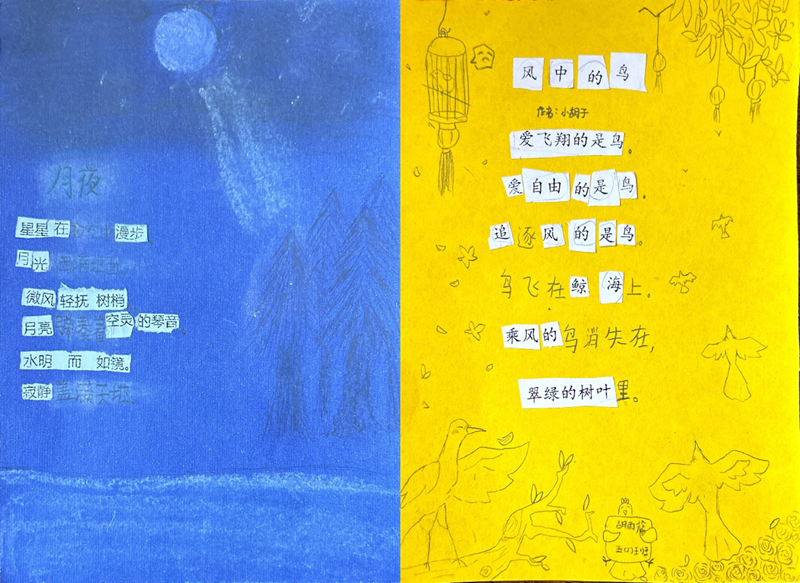 月夜
星星在 漫步、
月光
微风轻抚树梢
月亮 空灵的琴音、
水明而如镜。
寂静盖满大地
风中的鸟
作者:小胡子
爱飞翔的是鸟。
爱自由的是鸟。
追逐风的是鸟。
鸟飞在鲸海上。
乘风的鸟消失在,
翠绿的树叶里。